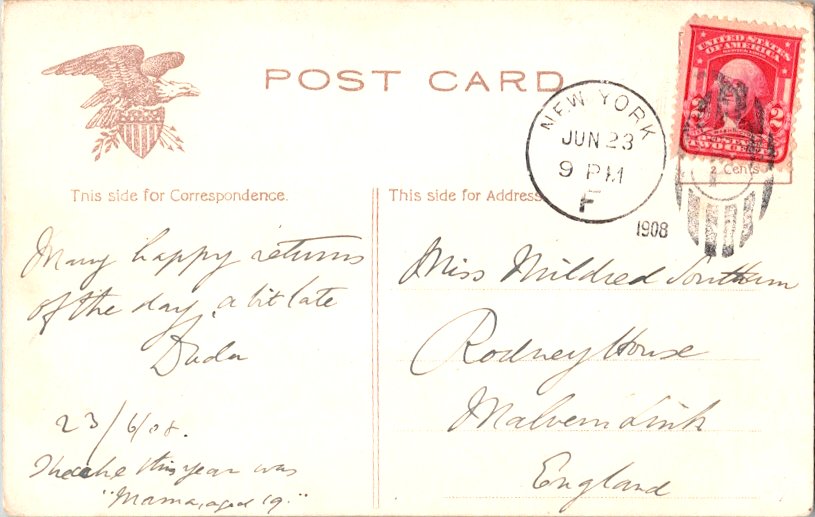 POST CARD
UNITED STATES
OF AMERICA
2 2
WASHINGTON
POSTAGE
TWO CENTS
2 Cents
NEW YORK
JUN 23
9 PM
F
1908
This side for Correspondence.
This side for Address
Many happy returns
of the day, a bit late
Dada
23/6/08.
this year was
"Mama, aged 19."
Miss Mildred Southam
Rodney House
Malvern Link
England